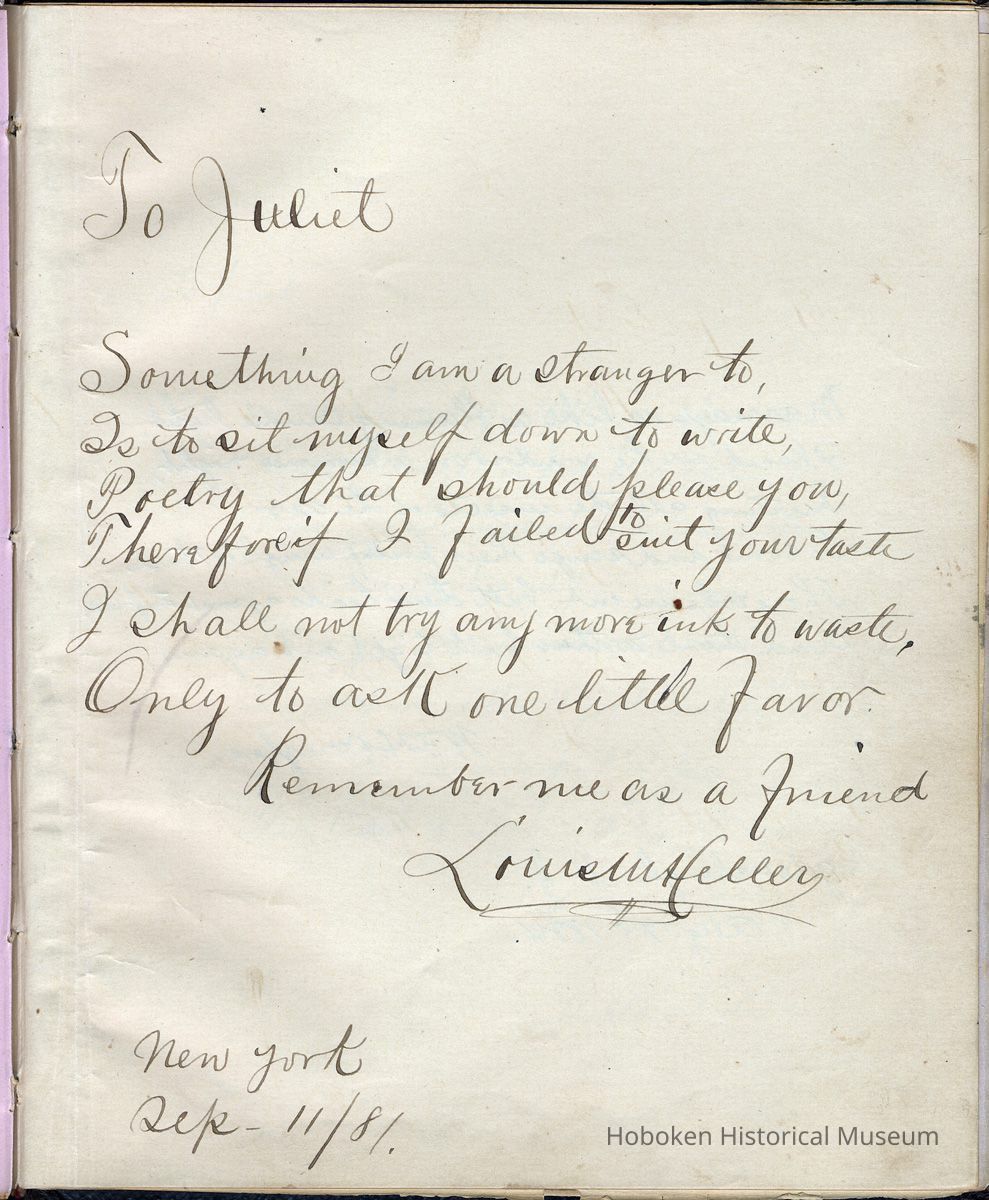 To Juliet
Something I am a stranger to,
Is to sit myself down to write,
Poetry that should please you,
Therefore if I failed to suit your taste
I shall not try any more ink to waste.
Only to ask one little favor.
Remember me as a friend
Louis M Heller
New York
Sep - 11/81.
Hoboken Historical Museum